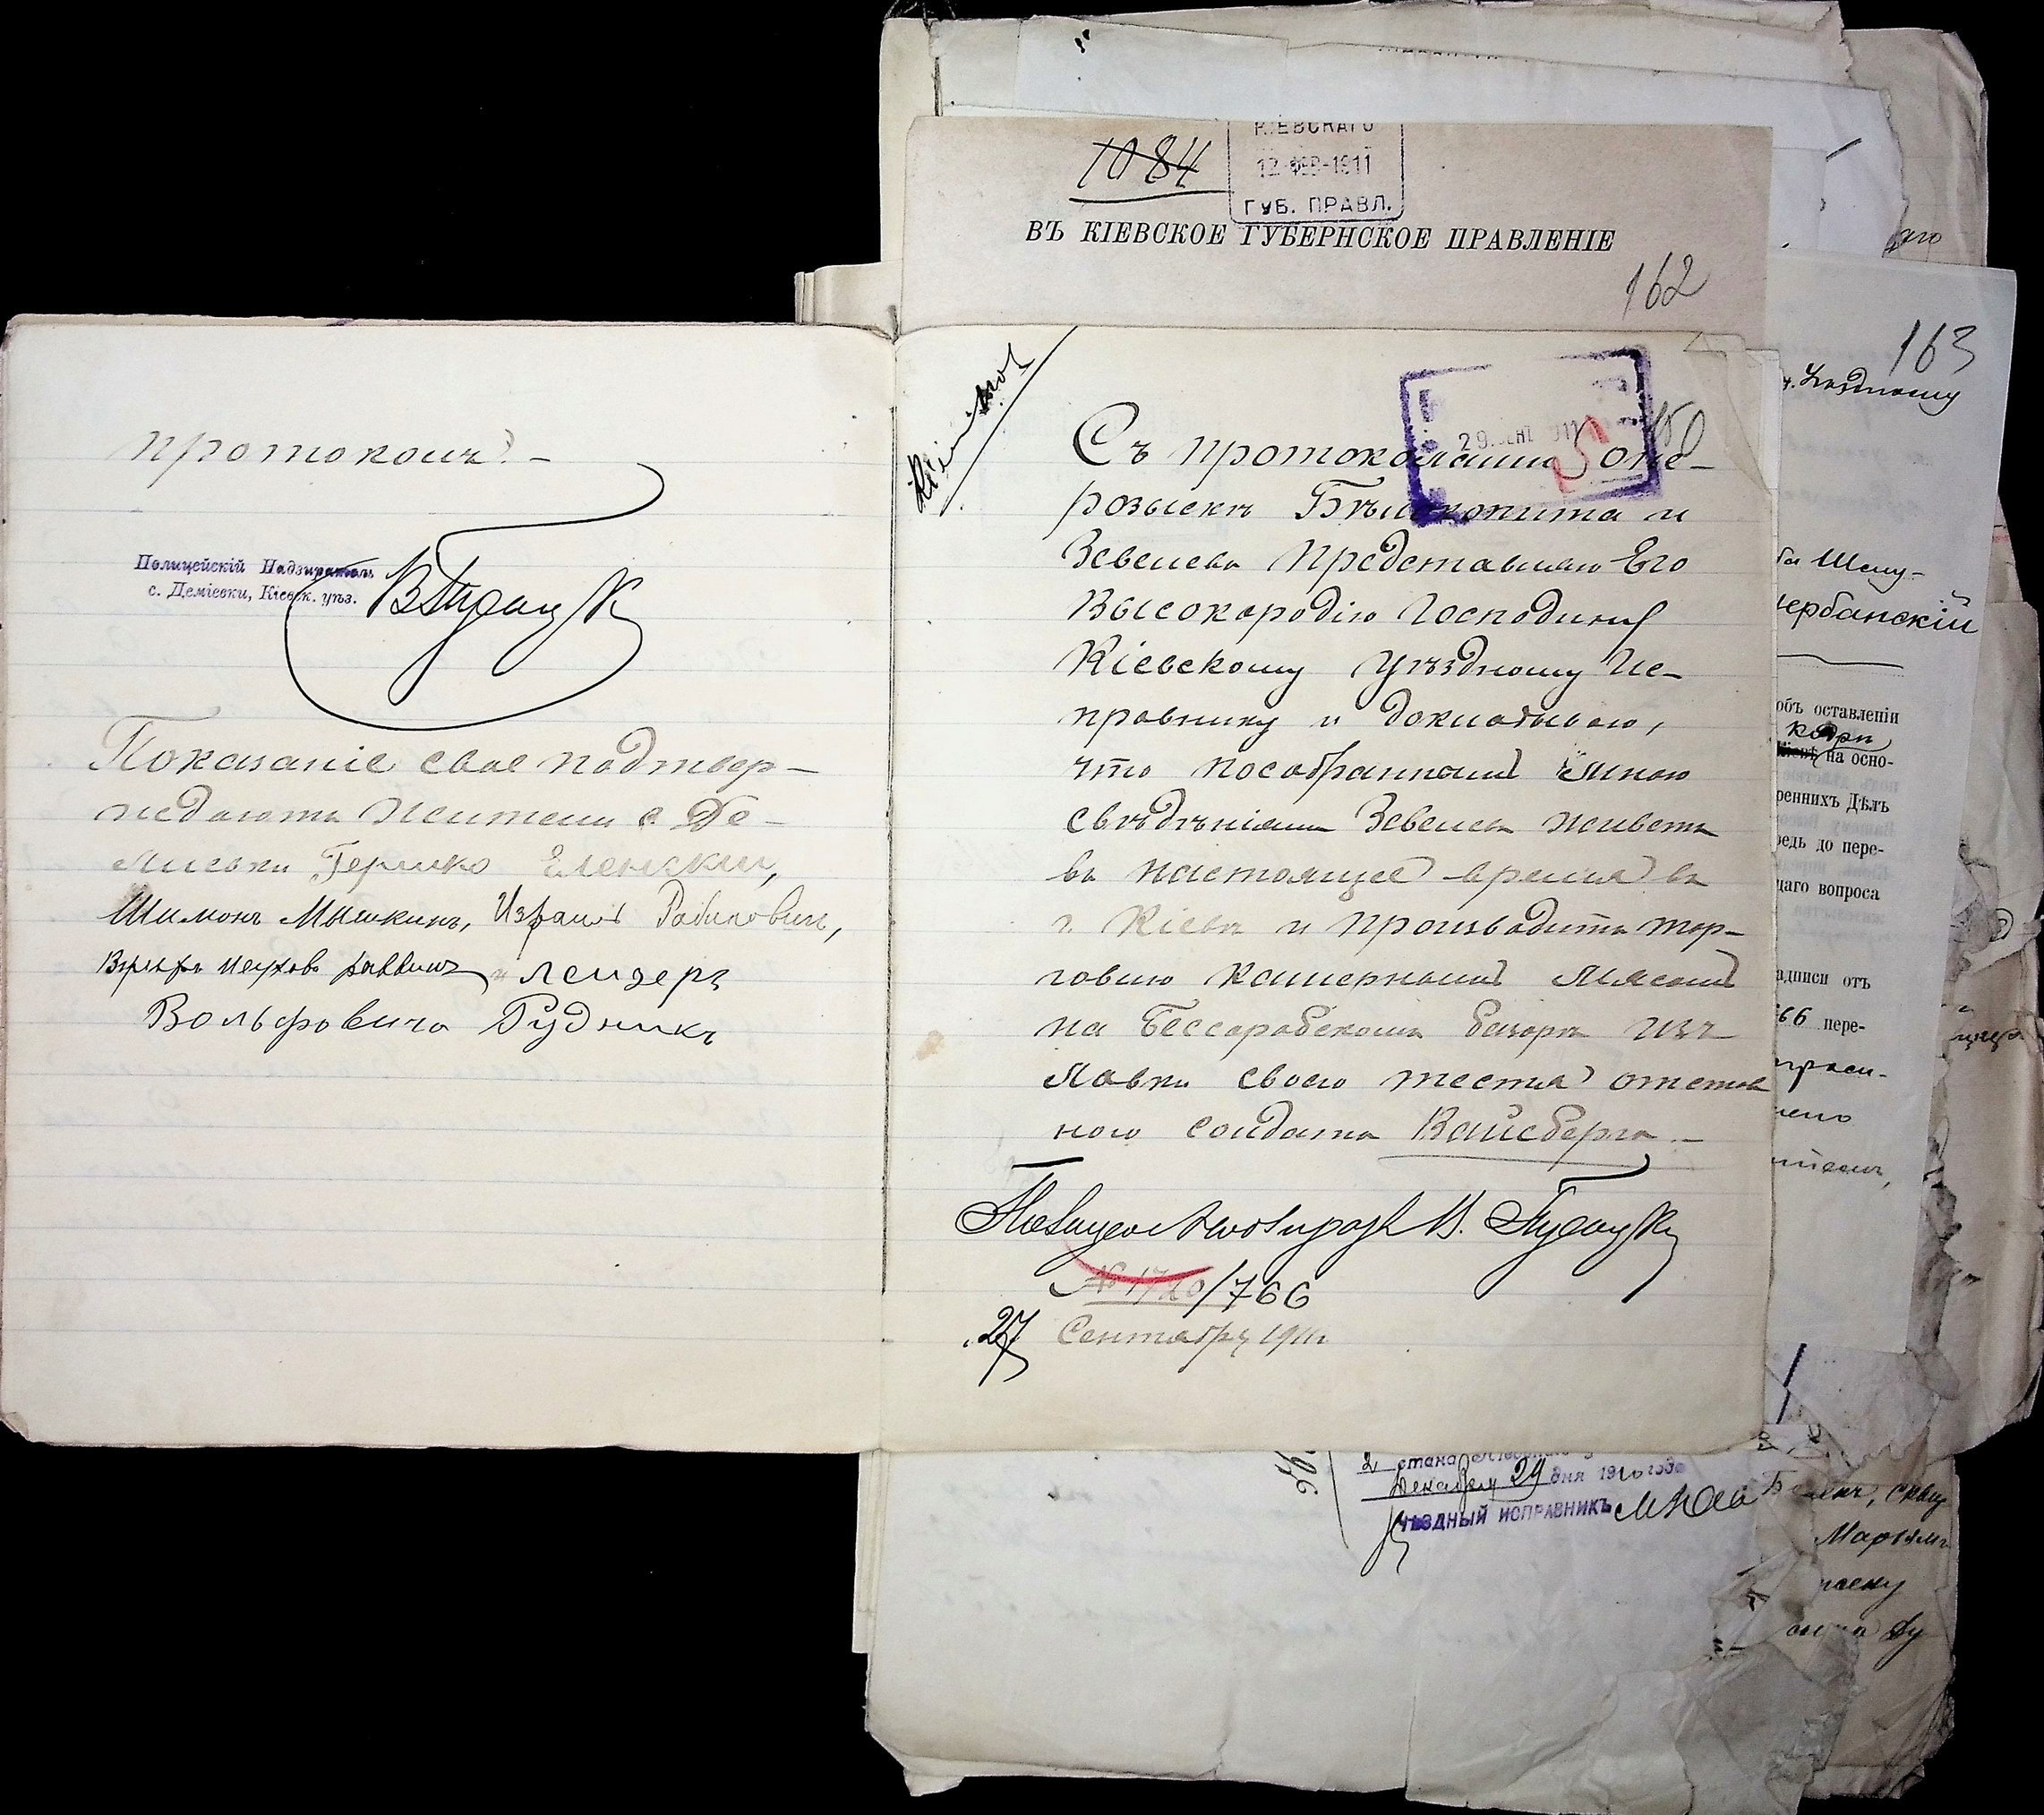 протоколъ.-
Полицейскій Надзиратель
с. Деміевки, Кіевск. уѣз.
Показаніе свое подтвер-
ждаютъ жители с Де-
міевки Гершко Еленскій,
Шимонъ Мышкинъ, Израиль Рабиновичъ,
Лейзеръ
Вольфовичъ Рудникъ
1084
КІЕВСКАГО
12 ФЕВ-1911
ГУБ. ПРАВЛ.
ВЪ КІЕВСКОЕ ГУБЕРНСКОЕ ПРАВЛЕНІЕ
162
163
150
Съ протоколами о не-
розыскѣ Бѣлокопыта и
Зевелева представляю Его
Высокородію Господину
Кіевскому Уѣздному Ис-
правнику и докладываю,
что по собраннымъ мною
свѣдѣніямъ Зевелевъ живетъ
въ настоящее время въ
г. Кіевѣ и производитъ тор-
говлю кашернымъ мясомъ
на Бессарабскомъ базарѣ изъ
лавки своего тестя отстав
ного солдата Вайсберга.-
№ 1720/766
27 Сентября 1911г.
Уѣздному
Щербанскій
объ оставленіи
на осно-
реннихъ Дѣлъ
редь до пере-
щаго вопроса
адписи отъ
66 пере-
стана
Декабря 29 дня 1910 года
УѢЗДНЫЙ ИСПРАВНИКЪ
Марьямъ